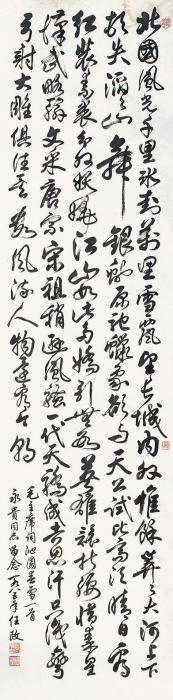 北國風光千里冰封萬里雪飄望長城内外惟餘莽々大河上下
頓失滔々山舞銀蛇原馳蠟象欲與天公試比高須晴日看
紅裝素裹分外妖嬈江山如此多嬌引無數英雄競折腰惜秦皇
漢武略輸文采唐宗宋祖稍遜風騷一代天驕成吉思汗只識彎
弓射大雕俱往矣數風流人物還看今朝
毛主席詞沁園春雪一首
永貴同志留念 年任政